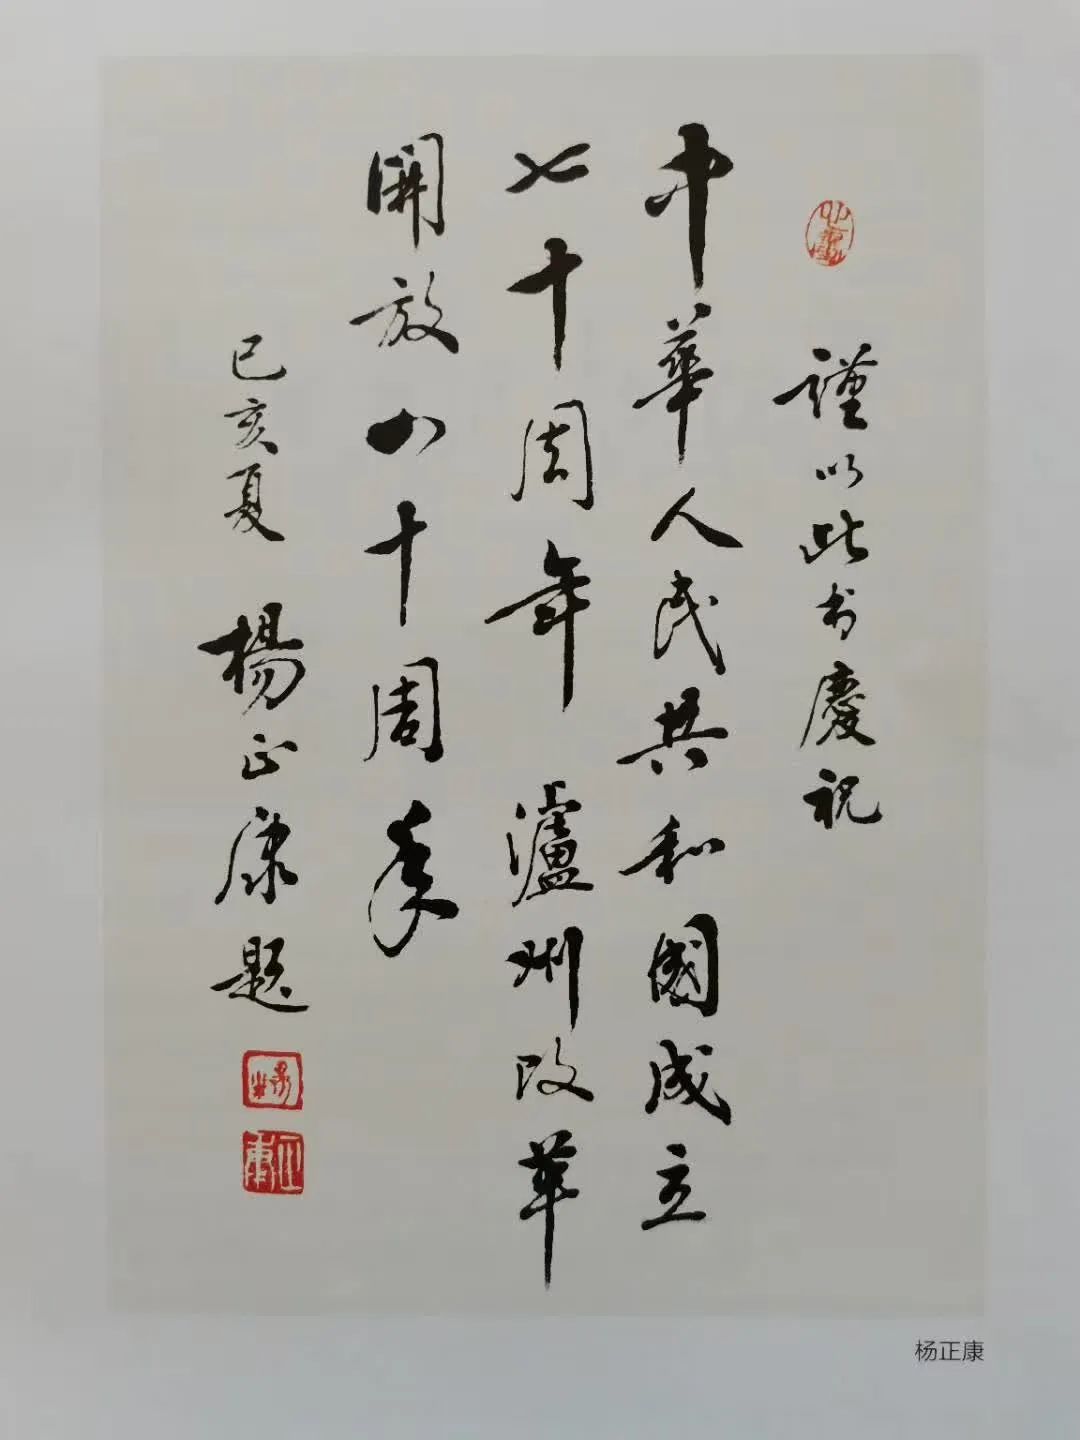 謹以此书慶祝
中華人民共和國成立
七十周年瀘州改革
開放四十周年
己亥夏 楊正康題
正康
杨正康